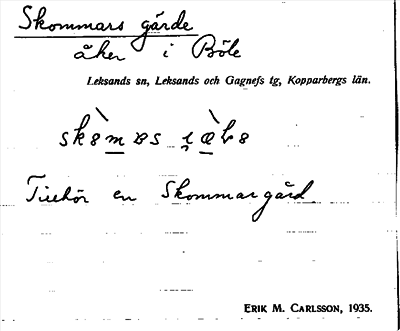 Skommars gärde
åker i Böle
Leksands sn, Leksands och Gagnefs tg, Kopparbergs län.
Tillhör en Skommargård
ERIK M. CARLSSON, 1935.